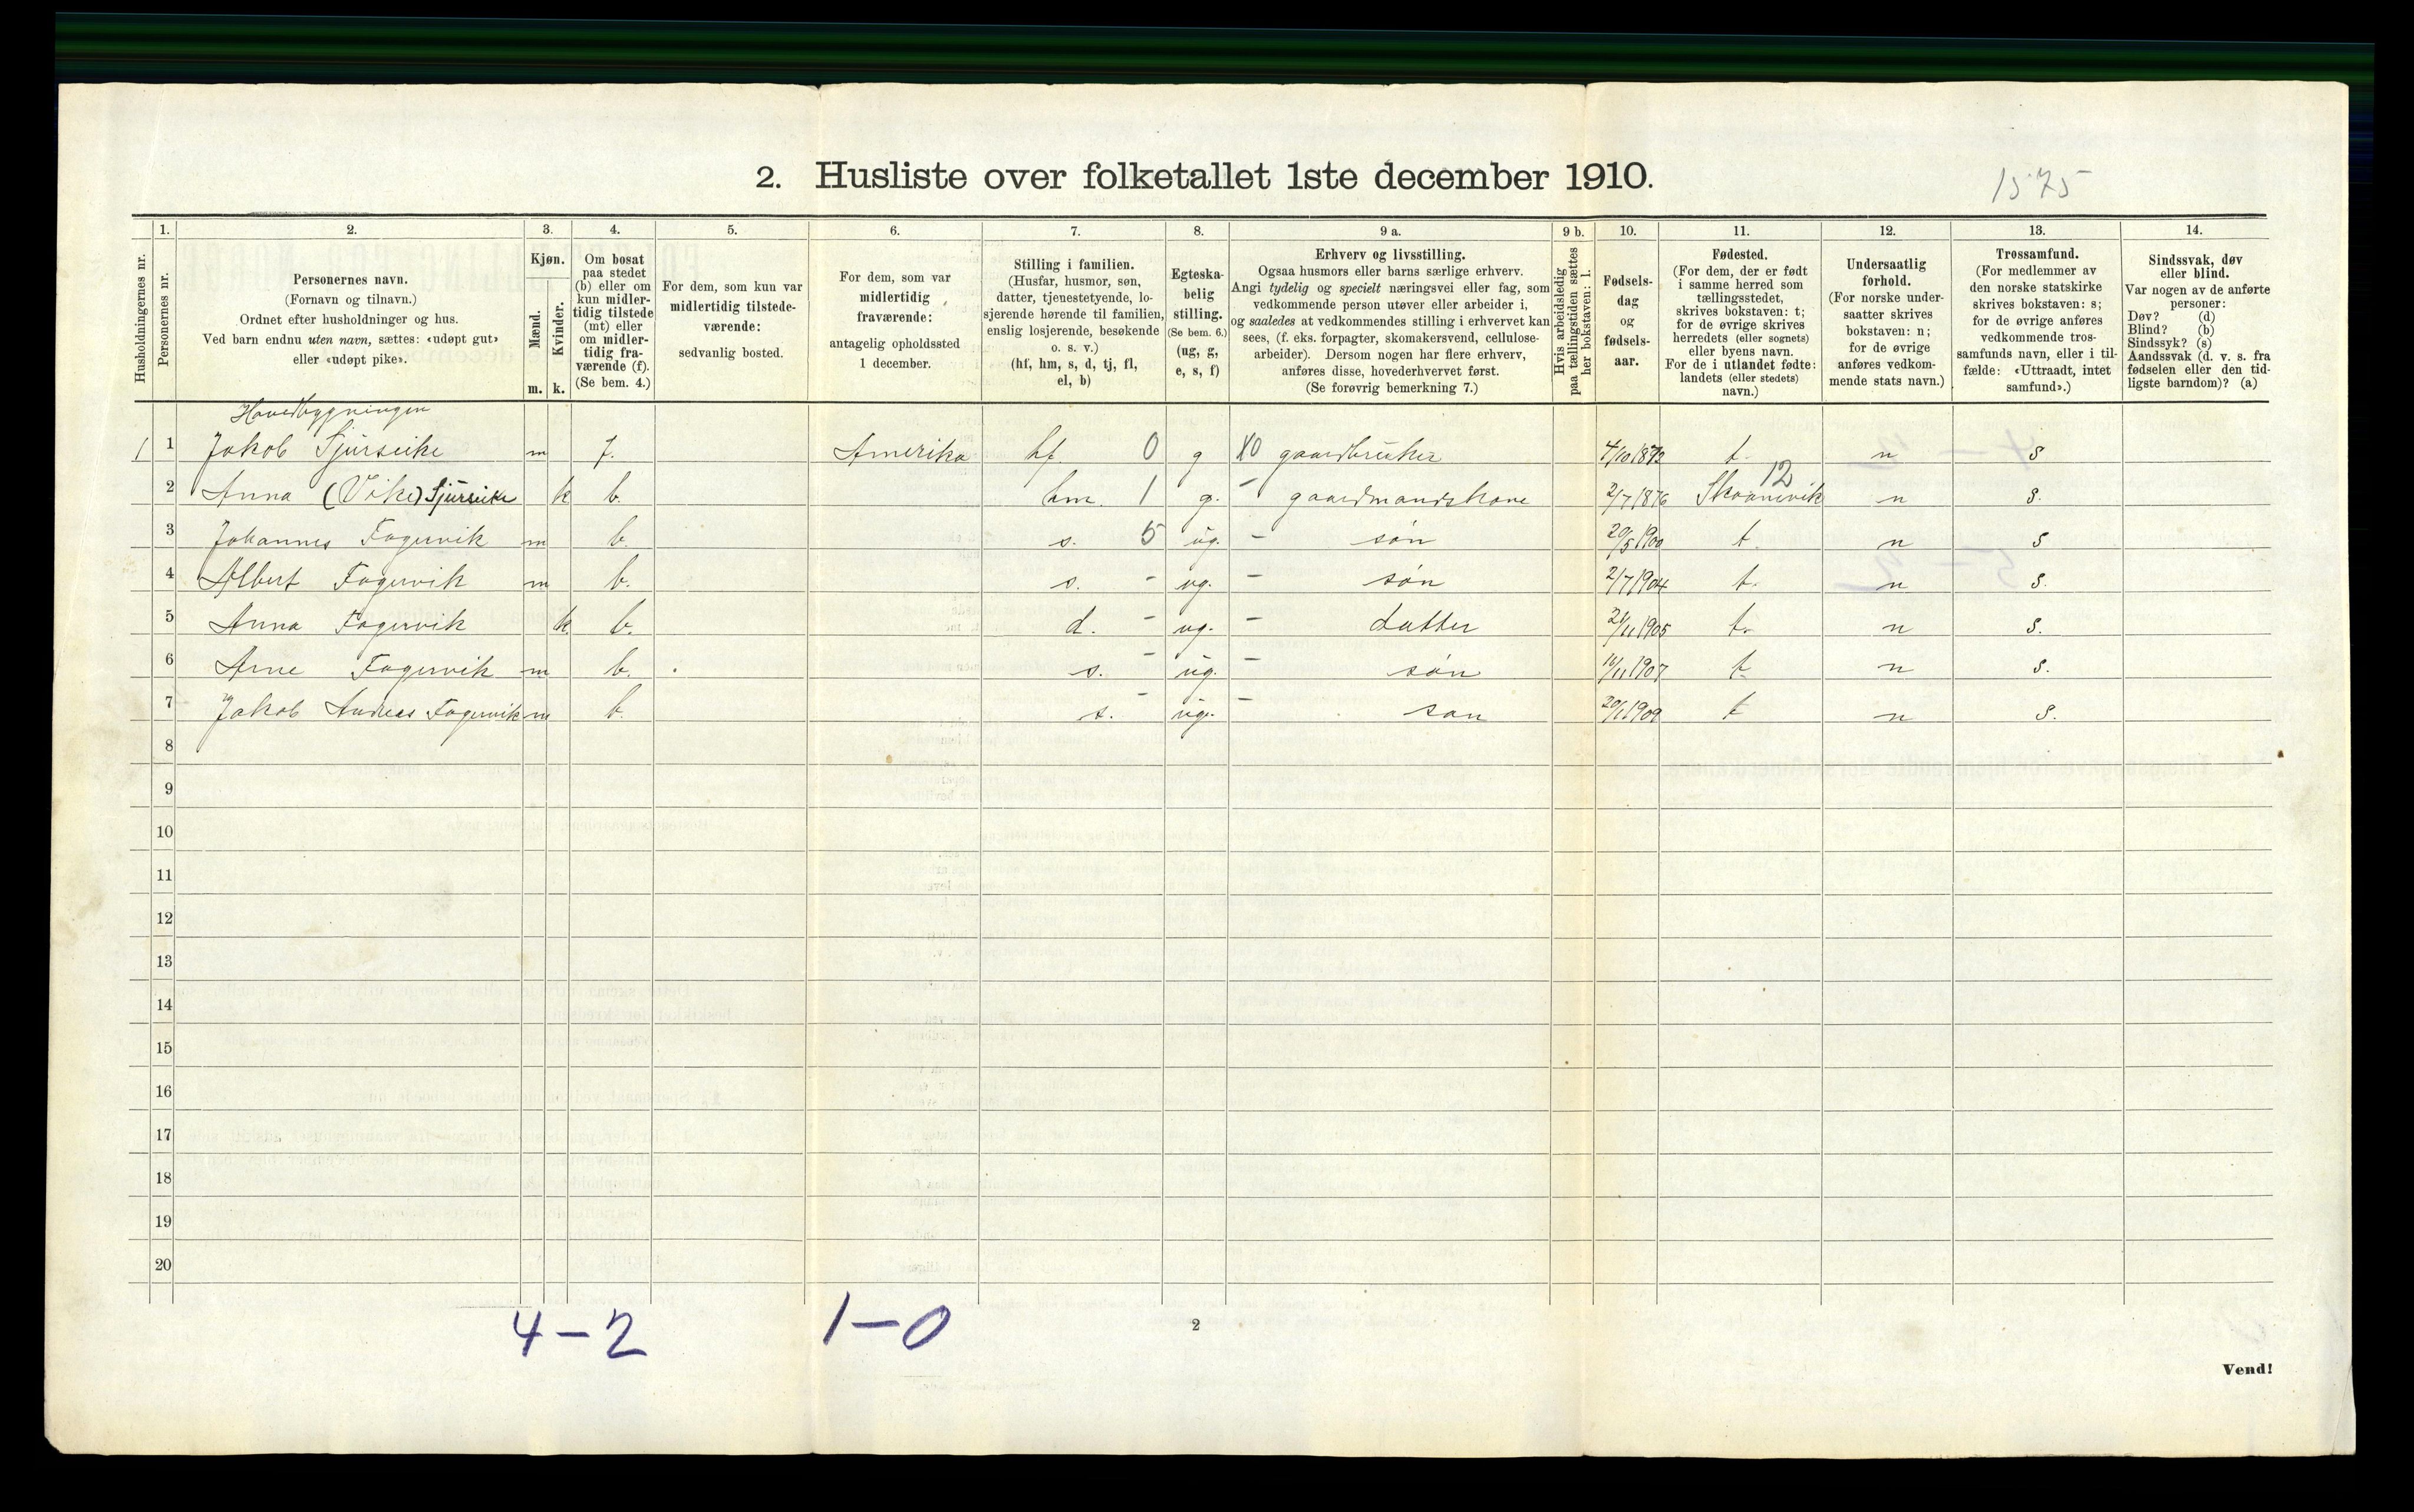 2. Husliste over folketallet 1ste december 1910.
1575
Husholdningernes nr.
1.
Personernes nr.
2.
Personernes navn.
(Fornavn og tilnavn.)
Ordnet efter husholdninger og hus.
Ved barn endnu uten navn, sættes: «udøpt gut»
eller «udøpt pike».
3.
Kjøn.
Mænd.
Kvinder.
m. k.
4.
Om bosat
paa stedet
(b) eller om
kun midler-
tidig tilstede
(mt) eller
om midler-
tidig fra-
værende (f).
(Se bem. 4.)
5.
For dem, som kun var
midlertidig tilstede-
værende:
sedvanlig bosted.
6.
For dem, som var
midlertidig
fraværende:
antagelig opholdssted
1 december.
7.
Stilling i familien.
(Husfar, husmor, søn,
datter, tjenestetyende, lo-
sjerende hørende til familien,
enslig losjerende, besøkende
o. s. v.)
(hf, hm, s, d, tj, fl,
el, b)
8.
Egteska-
belig
stilling.
(Se bem. 6.)
(ug, g,
e, s, f)
9 a.
Erhverv og livsstilling.
Ogsaa husmors eller barns særlige erhverv.
Angi tydelig og specielt næringsvei eller fag, som
vedkommende person utøver eller arbeider i,
og saaledes at vedkommendes stilling i erhvervet kan
sees, (f. eks. forpagter, skomakersvend, cellulose-
arbeider). Dersom nogen har flere erhverv,
anføres disse, hovederhvervet først.
(Se forøvrig bemerkning 7.)
9 b.
Hvis arbeidsledig
paa tællingstiden sættes
her bokstaven: l.
10.
Fødsels-
dag
og
fødsels-
aar.
11.
Fødested.
(For dem, der er født
i samme herred som
tællingsstedet,
skrives bokstaven: t;
for de øvrige skrives
herredets (eller sognets)
eller byens navn.
For de i utlandet fødte:
landets (eller stedets)
navn.)
12.
Undersaatlig
forhold.
(For norske under-
saatter skrives
bokstaven: n;
for de øvrige
anføres vedkom-
mende stats navn.)
13.
Trossamfund.
(For medlemmer av
den norske statskirke
skrives bokstaven: s;
for de øvrige anføres
vedkommende tros-
samfunds navn, eller i til-
fælde: «Uttraadt, intet
samfund».)
14.
Sindssvak, døv
eller blind.
Var nogen av de anførte
personer:
Døv? (d)
Blind? (b)
Sindssyk? (s)
Aandssvak (d. v. s. fra
fødselen eller den tid-
ligste barndom)? (a)
Hovedbygningen
1 1 Jakob Sjurseike m f. Amerika hf. 0 g X0 gaardbruker 4/10 1872 t. n s
12
2 Anna (Vike) Sjurseike k b. hm. 1 g. - gaardmandskone 2/7 1876 Skaanevik n s.
3 Johannes Fagervik m b. s. 5 ug. - søn 20/5 1900 t. n s
4 Albert Fagervik m b. s. - ug. - søn 2/7 1904 t. n s.
5 Anna Fagervik k b. d. - ug. - datter 21/11 1905 t. n s.
6 Arne Fagervik m b. s. - ug. - søn 16/11 1907 t n s.
7 Jakob Andreas Fagervik m b. s. - ug. - søn 20/1 1909 t n s.
8
9
10
11
12
13
14
15
16
17
18
19
20
4-2 1-0
2
Vend!